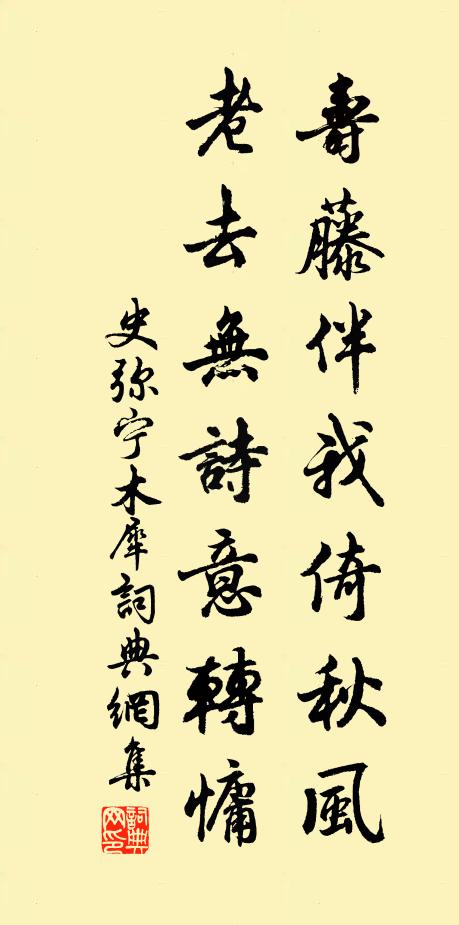 壽藤伴我倚秋風
老去無詩意轉慵
史弥宁木犀詞典網集
詞典网印